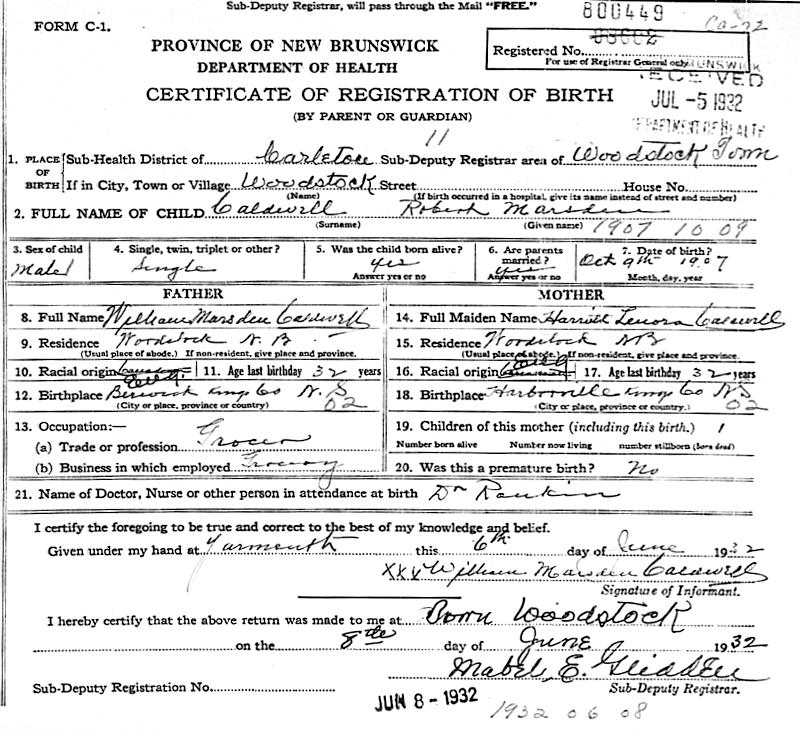 Sub-Deputy Registrar, will pass through the Mail "FREE."
800449
FORM C-1.
PROVINCE OF NEW BRUNSWICK
Registered No.
For use of Registrar General only
DEPARTMENT OF HEALTH
RECEIVED
JUL -5 1932
DEPARTMENT OF HEALTH
CERTIFICATE OF REGISTRATION OF BIRTH
(BY PARENT OR GUARDIAN)
11
1. PLACE OF BIRTH Sub-Health District of Carleton Sub-Deputy Registrar area of Woodstock Town
If in City, Town or Village Woodstock Street House No.
(Name) (If birth occurred in a hospital, give its name instead of street and number)
2. FULL NAME OF CHILD Caldwell Robert Marsden
(Surname) (Given name) 1907 10 09
3. Sex of child 4. Single, twin, triplet or other? 5. Was the child born alive? 6. Are parents married? 7. Date of birth?
Male Single yes yes Oct 9th 1907
Answer yes or no Answer yes or no Month, day, year
FATHER MOTHER
8. Full Name William Marsden Caldwell 14. Full Maiden Name Harriet Lenora Caldwell
9. Residence Woodstock N.B. 15. Residence Woodstock NB
(Usual place of abode.) If non-resident, give place and province. (Usual place of abode.) If non-resident, give place and province.
10. Racial origin 11. Age last birthday 32 years 16. Racial origin 17. Age last birthday 32 years
12. Birthplace Berwick Kings Co N.S 18. Birthplace Harborville Kings Co NS
(City or place, province or country) 02 (City or place, province or country.) 02
13. Occupation:— 19. Children of this mother (including this birth.) 1
(a) Trade or profession Grocer Number born alive Number now living number stillborn (born dead)
(b) Business in which employed Grocery 20. Was this a premature birth? No
21. Name of Doctor, Nurse or other person in attendance at birth Dr Rankin
I certify the foregoing to be true and correct to the best of my knowledge and belief.
Given under my hand at Yarmouth this 6th day of June 1932
XXX William Marsden Caldwell
Signature of Informant.
I hereby certify that the above return was made to me at Town Woodstock
on the 8th day of June 1932
Mabel E. Glidden
Sub-Deputy Registration No. Sub-Deputy Registrar.
JUN 8 - 1932
1932 06 08